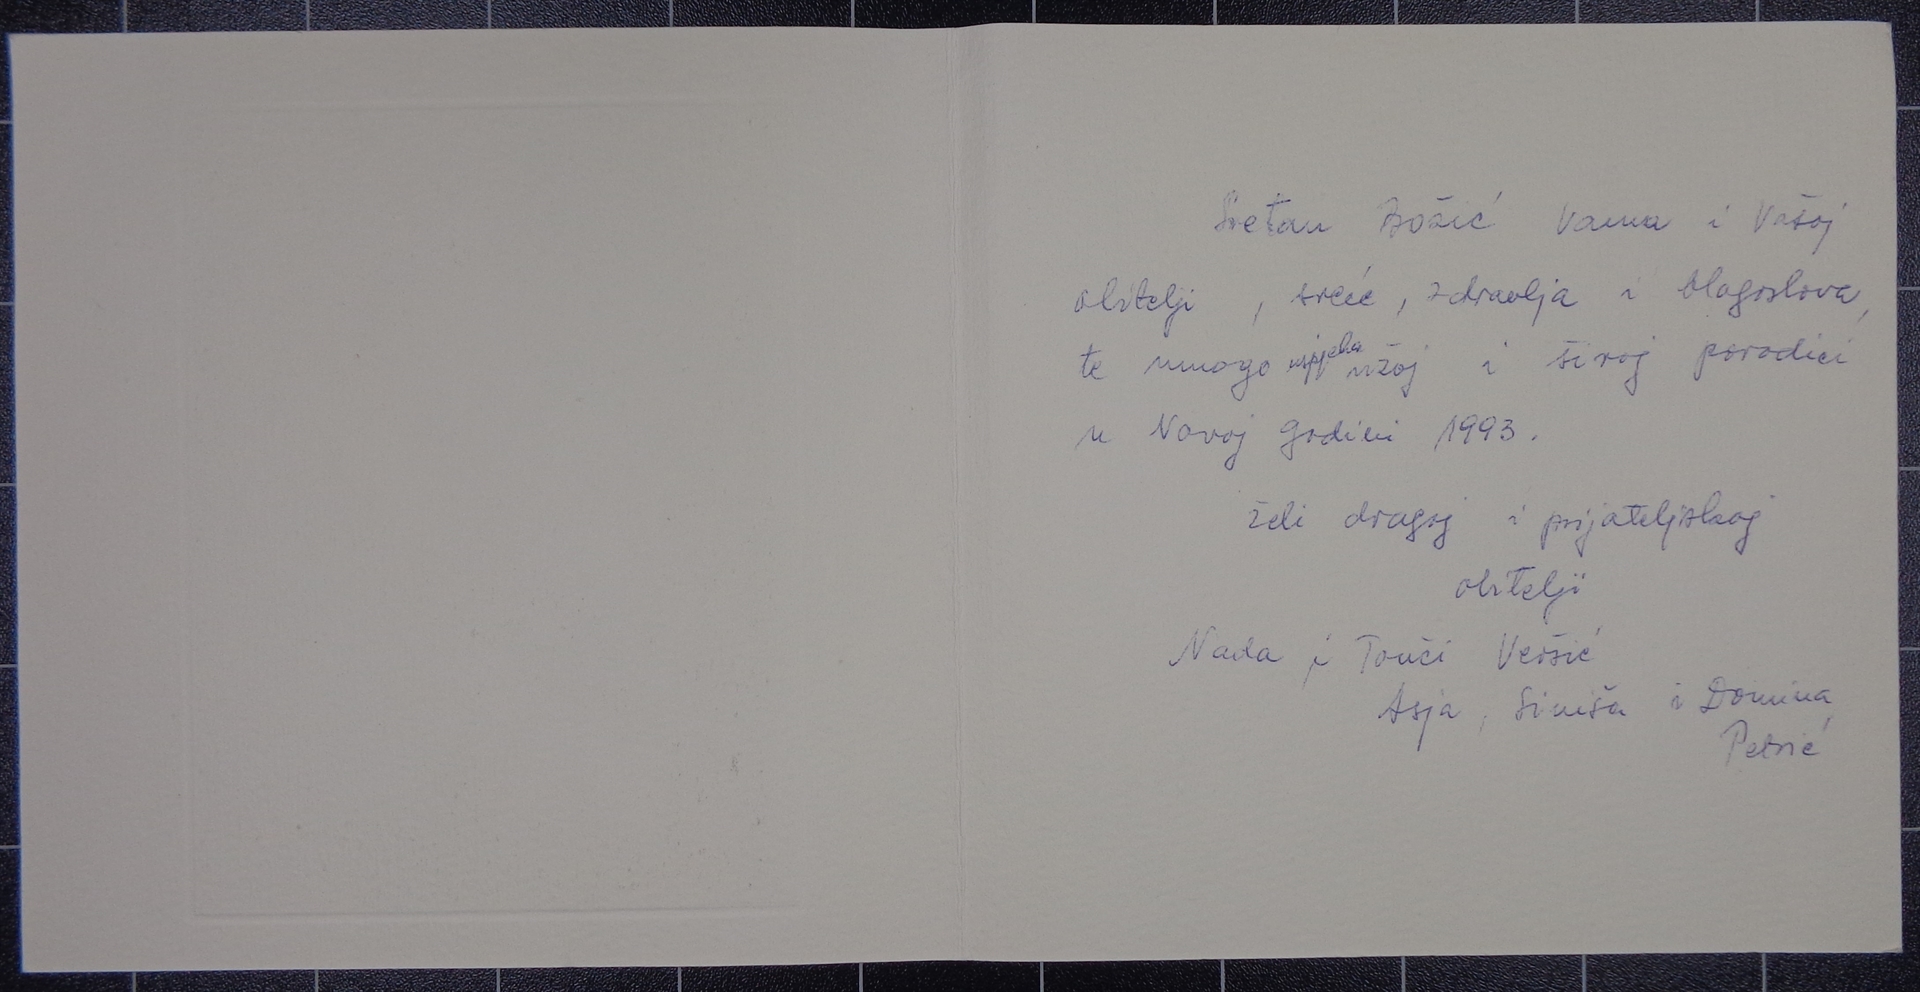 Sretan Božić Vama i Vašoj
obitelji , sreće, zdravlja i blagoslova,
te mnogo uspjeha užoj i široj porodici
u Novoj godini 1993.
želi dragoj i prijateljskoj
obitelji
Nada i Tonči Veršić
Asja, Siniša i Domina
Petrić